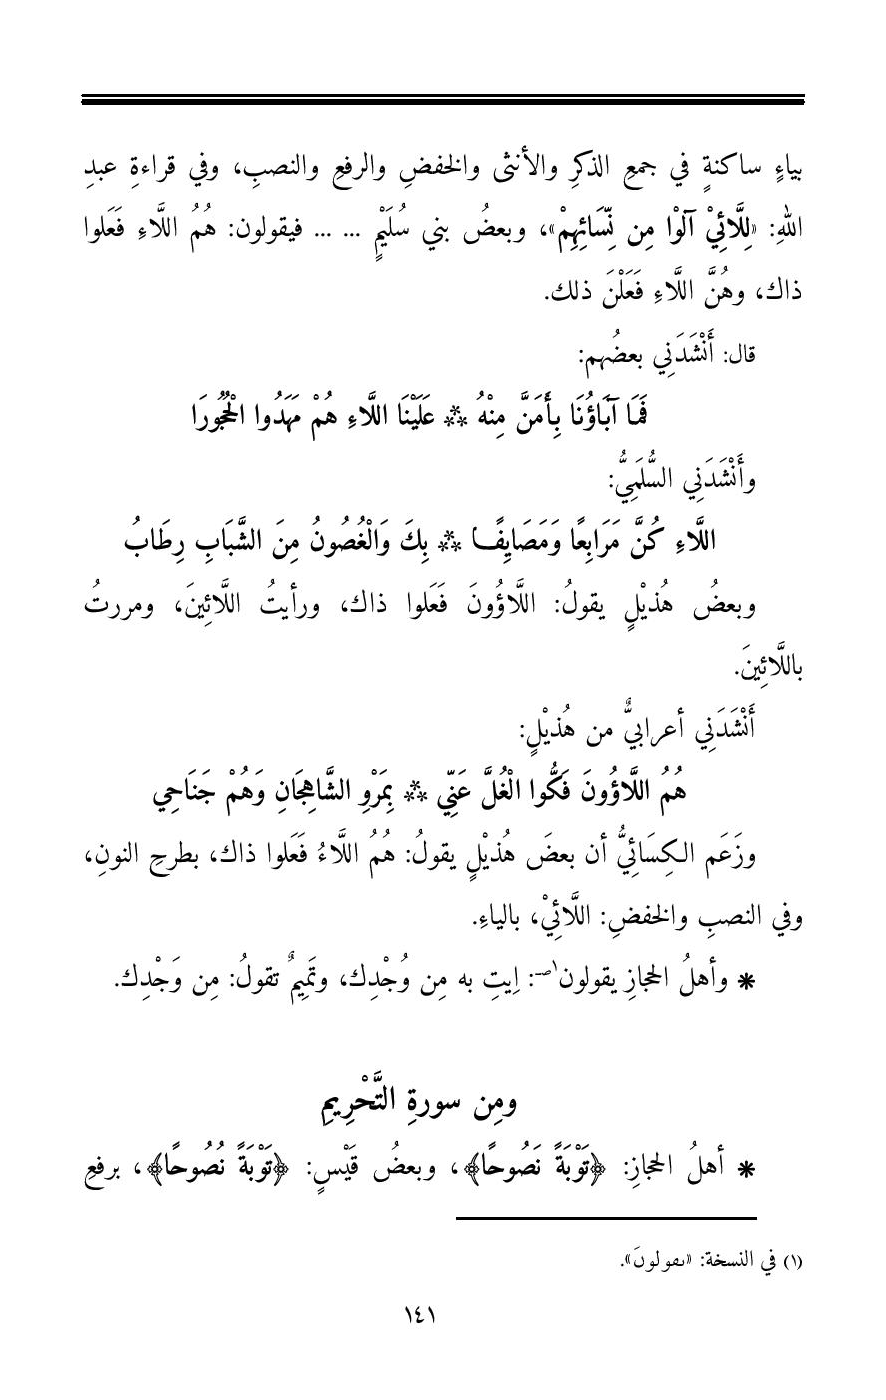 بياءٍ ساكنةٍ في جمعِ الذكرِ والأنثى والخفضِ والرفعِ والنصبِ، وفي قراءةِ عبدِ
اللهِ: «لِلَّائِيْ آلَوْا مِن نِّسَائِهِمْ»، وبعضُ بني سُلَيْمٍ ... ... فيقولون: هُمُ اللَّاءِ فَعَلوا
ذاك، وهُنَّ اللَّاءِ فَعَلْنَ ذلك.
قال: أَنْشَدَنِي بعضُهم:
فَمَا آبَاؤُنَا بِأَمَنَّ مِنْهُ ** عَلَيْنَا اللَّاءِ هُمْ مَهَدُوا الْحُجُورَا
وأَنْشَدَنِي السُّلَمِيُّ:
اللَّاءِ كُنَّ مَرَابِعًا وَمَصَايِفًا ** بِكَ وَالْغُصُونُ مِنَ الشَّبَابِ رِطَابُ
وبعضُ هُذيْلٍ يقولُ: اللَّاؤُونَ فَعَلوا ذاك، ورأيتُ اللَّائِينَ، ومررتُ
باللَّائِينَ.
أَنْشَدَنِي أعرابيٌّ من هُذيْلٍ:
هُمُ اللَّاؤُونَ فَكُّوا الْغُلَّ عَنِّي ** بِمَرْوِ الشَّاهِجَانِ وَهُمْ جَنَاحِي
وزَعَم الكِسَائِيُّ أن بعضَ هُذيْلٍ يقولُ: هُمُ اللَّاءُ فَعَلوا ذاك، بطرحِ النونِ،
وفي النصبِ والخفضِ: اللَّائِيْ، بالياءِ.
* وأهلُ الحجازِ يقولون: اِيتِ به مِن وُجْدِك، وتَمِيمٌ تقولُ: مِن وَجْدِك.
ومِن سورةِ التَّحْرِيمِ
* أهلُ الحجازِ: ﴿تَوْبَةً نَصُوحًا﴾، وبعضُ قَيْسٍ: ﴿تَوْبَةً نُصُوحًا﴾، برفعِ
(١) في النسخة: «ىڡولونَ».
١٤١